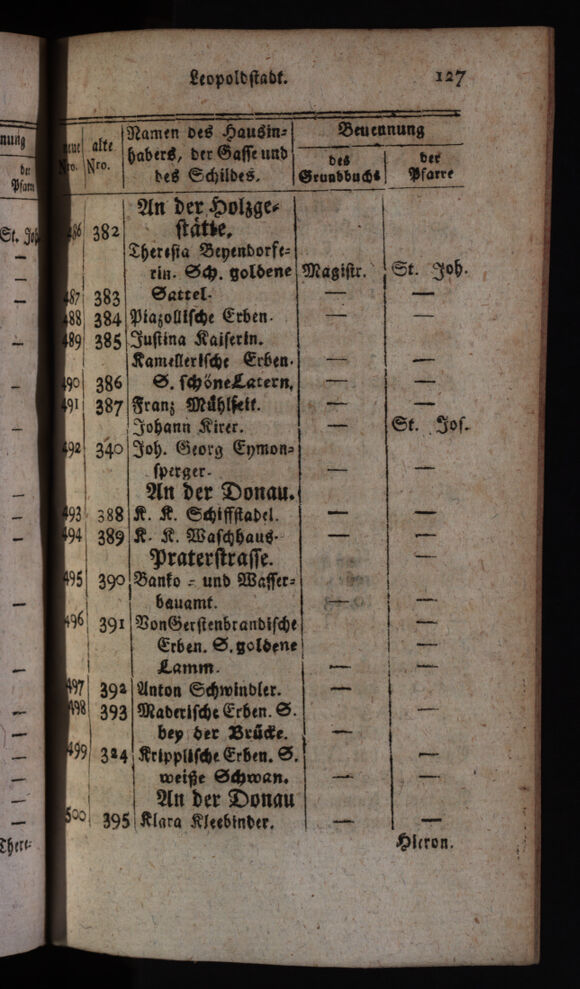 Leopoldstadt. 127
nung
der
Pfarre
St. Joh
There-
neue Nro.
alte Nro.
Namen des Hausin-
habers, der Gasse und
des Schildes.
Benennung
des Grundbuchs
der Pfarre
An der Holzge-
stätte.
486 382 Theresia Beyendorfe-
rin. Sch. goldene Magistr. St. Joh.
487 383 Sattel. — —
488 384 Piazollische Erben. — —
489 385 Justina Kaiserin.
Kamellerische Erben. — —
490 386 S. schöne Latern. — —
491 387 Franz Mühlseit. — —
Johann Kirer. — St. Jos.
492 340 Joh. Georg Eymon-
sperger. — —
An der Donau.
493 388 K. K. Schiffstadel. — —
494 389 K. K. Waschhaus. — —
Praterstrasse. —
495 390 Banko - und Wasser-
bauamt. — —
496 391 Von Gerstenbrandische —
Erben. S. goldene —
Lamm. — —
497 392 Anton Schwindler. —
498 393 Maderische Erben. S. —
bey der Brücke. —
499 324 Kripplische Erben. S. —
weiße Schwan. — —
An der Donau
500 395 Klara Kleebinder. — —
Hieron.